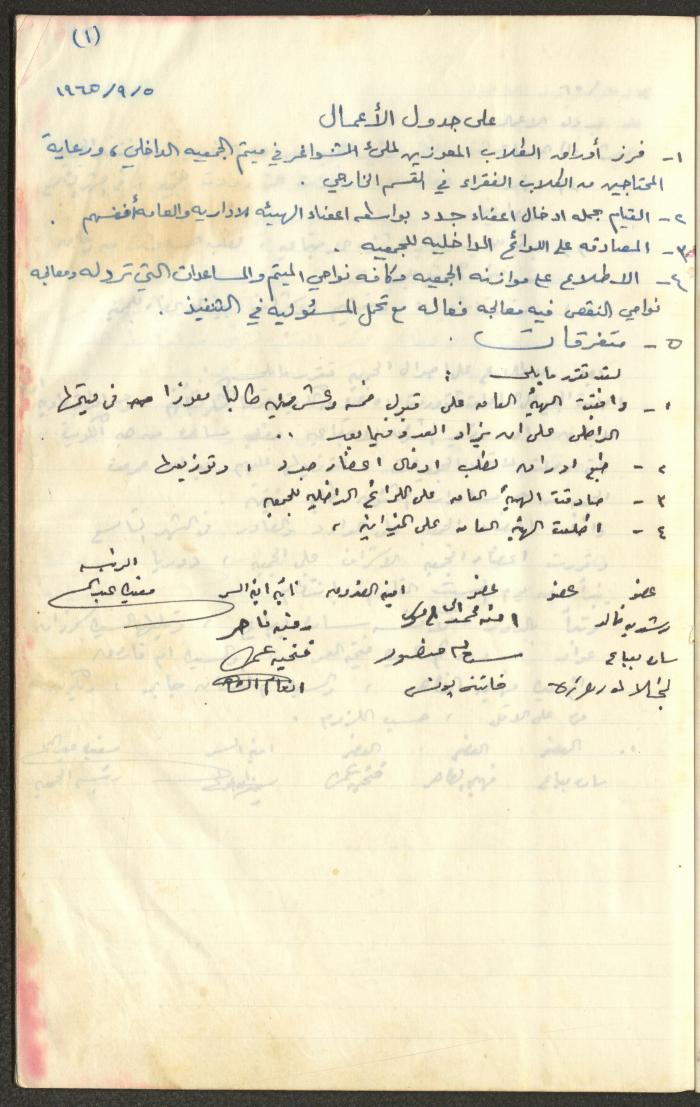 (١)
١٩٦٥/٩/٥
على جدول الأعمال
١- فرز أوراق الطلاب المعوزين لملئ الشواغر في ميتم الجمعيه الداخلي، ورعاية
المحتاجين من الطلاب الفقراء في القسم الخارجي .
٢- القيام بحمله ادخال اعضاء جدد بواسطه اعضاء الهيئه الاداريه والعامه أنفسهم .
٣- المصادقه على اللوائح الداخليه للجمعيه .
٤- الاطلاع على موازنه الجمعيه وكافه نواحي الميتم والمساعدات التي ترد له ومعالجه
نواحي النقص فيه معالجه فعاله مع تحمل المسئوليه في التنفيذ .
٥- متفرقات .
لقد تقرر ما يلي :
١- وافقت الهيئه العامه على قبول خمسه وعشرين طالبا معوزا في ميتمها
الداخلي على ان يزاد العدد فيما بعد ..
٢- طبع اوراق لطلب ادخال اعضاء جدد ، وتوزيعها
٣- صادقت الهيئة العامه على اللوائح الداخليه للجمعيه
٤- اطلعت الهيئه العامه على الميزانيه ،
عضو عضو عضو امينه الصندوق نائبه امينه السر الرئيسه
رشديه خالد امنه محمد الحاج رقيه
سلم منصور فتحيه
فاتنه يونس انعام